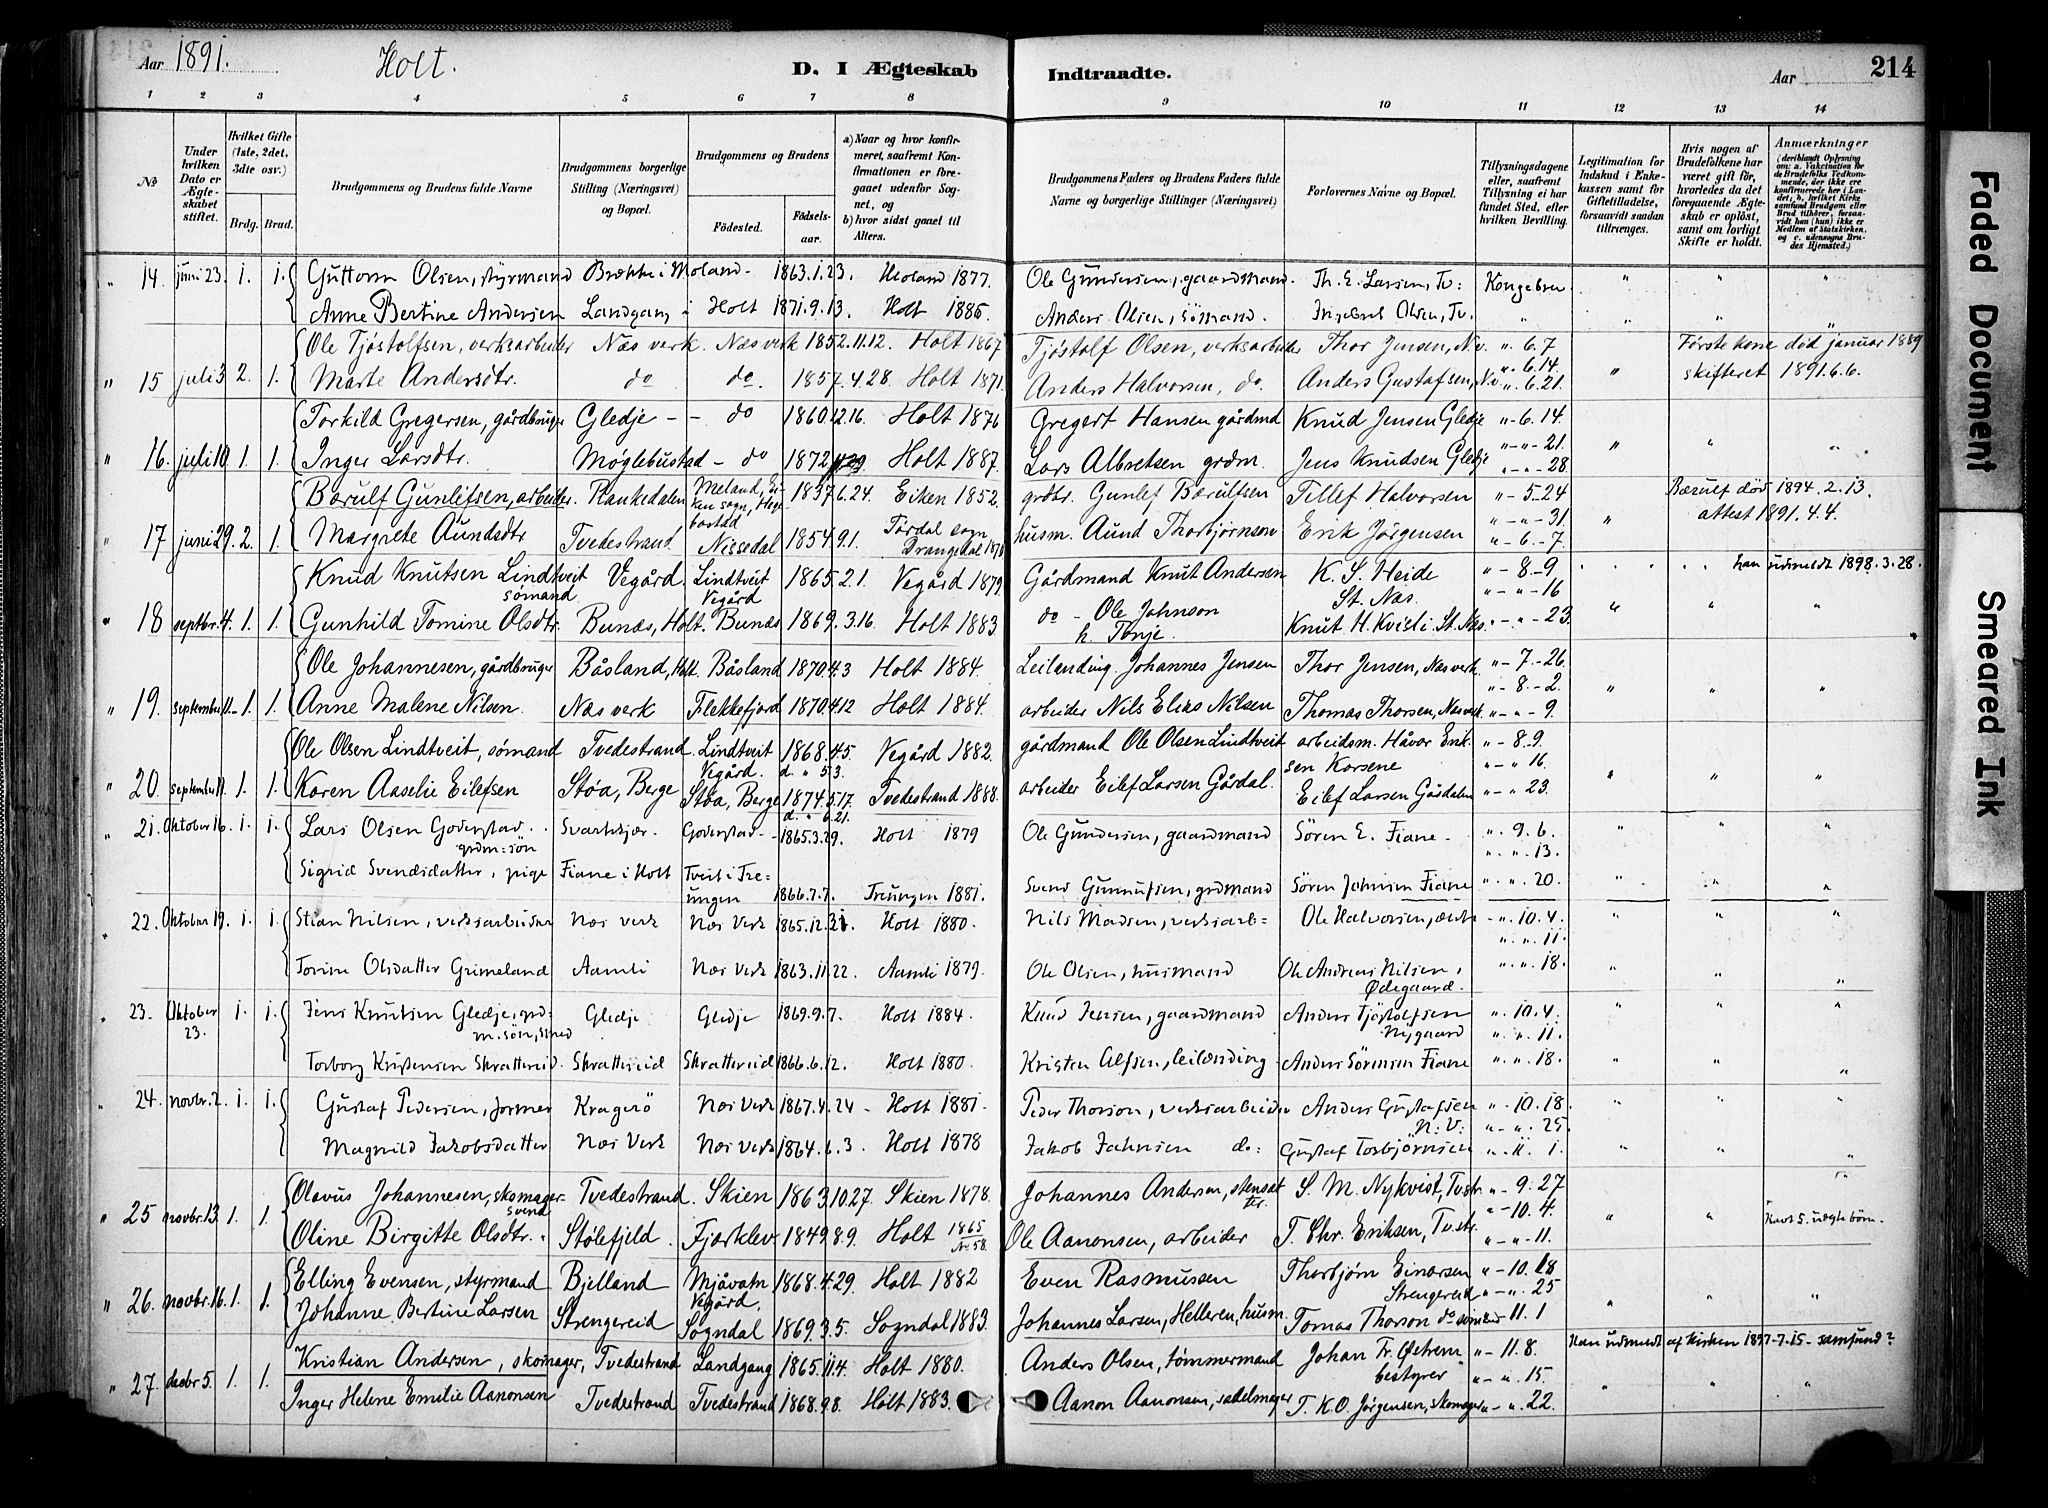 Aar 1891. Holt. D. I Ægteskab Indtraadte. Aar 214
1 2 3 4 5 6 7 8 9 10 11 12 13 14
№
Under hvilken Dato er Ægteskabet stiftet.
Hvilket Gifte (1ste, 2det, 3dte osv.)
Brdg. Brud.
Brudgommens og Brudens fulde Navne
Brudgommens borgerlige Stilling (Næringsvei) og Bopæl.
Brudgommens og Brudens
Födested. Födselsaar.
a) Naar og hvor konfirmeret, saafremt Konfirmationen er foregaaet udenfor Sognet, og
b) hvor sidst gaaet til Alters.
Brudgommens Faders og Brudens Faders fulde Navne og borgerlige Stillinger (Næringsvei)
Forlovernes Navne og Bopæl.
Tillysningsdagene eller, saafremt Tillysning ei har fundet Sted, efter hvilken Bevilling.
Legitimation for Indskud i Enkekassen samt for Giftetilladelse, forsaavidt saadan tiltrænges.
Hvis nogen af Brudefolkene har været gift før, hvorledes da det foregaaende Ægteskab er opløst, samt om lovligt Skifte er holdt.
Anmærkninger
(deriblandt Oplysning om: a. Vakcination for de Brudefolks Vedkommende, der ikke ere konfirmerede her i Landet, b. hvilket Kirkesamfund Brudgom eller Brud tilhører, forsaavidt han (hun) ikke er Medlem af Statskirken, og c. udensogns Brudes Hjemsted.)
" 14. juni 23. 1. 1. Guttorm Olsen, styrmand Brække i Moland - 1863.1.23. Moland 1877. Ole Gundersen, gaardmand. Th. E. Larsen, Tv: Kongebrev " " "
Anne Bertine Andersen Landgang i Holt 1871.9.13. Holt 1886. Anders Olsen, sömand. Ingebret Olsen, Tv. " " " "
Ole Tjøstolfsen, verksarbeider Næs verk. Næs verk 1852.11.12. Holt 1867 Tjøstolf Olsen, verksarbeider Thor Jensen, N.v. " 6.7 Første kone död januar 1889
" 15 juli 3 2. 1. Marte Andersdtr. do do. 1857.4.28. Holt 1871. Anders Halvorsen, do. Anders Gustafsen, N.v. " 6.14 " 6.21. " skifteret 1891.6.6.
Torkild Gregersen, gårdbruger Gledje - - do 1860.12.16. Holt 1876 Gregert Hansen gårdmd Knud Jensen Gledje " - 6. 14
" 16. juli 10 1. 1. Inger Larsdtr. Møglebustad - do 1872 Holt 1887. Lars Albretsen grdm. Jens Knudsen Gledje " - " - 21. " - " - 28. " " "
Bærulf Gunlefsen, arbeider. Plankedalen Meland, Eiken sogn, Hegebostad 1837.6.24. Eiken 1852. grdbr. Gunlef Bærulfsen Tellef Halvorsen " - 5-24 Bærulf död 1894.2.13.
" 17 juni 29. 2. 1. Margrete Aundsdtr Tvedestrand Nissedal 1854.9.1. Tördal sogn Drangedal 1870 husm. Aund Thorbjörnsen Erik Jørgensen " - " - 31. " - 6 - 7. " attest 1891.4.4.
Knud Knutsen Lindtveit sømand Vegård. Lindtveit Vegård 1865.2.1. Vegård 1879. Gårdmand Knut Andersen K. S. Heide St. Næs. " - 8 - 9 " - " - 16 han udmeldt 1898.3.28.
" 18 septbr. 4. 1. 1. Gunhild Tomine Olsdtr. Bunæs, Holt. Bunæs 1869.3.16. Holt 1883. do - Ole Johnson h. Tonje. Knut H. Kvisli St. Næs. " - " - 23. " " "
Ole Johannesen, gårdbruger Båsland, Holt. Båsland 1870.4.3 Holt 1884. Leilending. Johannes Jensen Thor Jensen, Næs verk " - 7. - 26.
" 19. september 11. 1. 1. Anne Malene Nilsen. Næs verk Flekkefjord 1870.4.12 Holt 1884. arbeider Nils Elias Nilsen Thomas Thorsen, Næs verk " - 8. - 2. " - " - 9. " " "
Ole Olsen Lindtveit, sømand Tvedestrand. Lindtveit Vegård. 1868.4.5. d. " 5.3. Vegård 1882. gårdmand Ole Olsen Lindtveit arbeidsm. Håvor Eriksen Korsene " - 8 - 9. " - " 16.
" 20. september 11. 1. 1. Karen Aaselie Eilefsen Støa, Berge Støa, Berge 1874.5.17. d. " 6.21. Tvedestrand 1888. arbeider Eilef Larsen Gårdal. Eilef Larsen Gårdalen " - " 23. " " "
" 21. Oktober 16. 1. 1. Lars Olsen Goderstad grdm: søn Svartkjær. Goderstad - 1865.3.29. Holt 1879 Ole Gundersen, gaardmand Sören E. Fiane - " . 9. 6. " . " . 13. " " "
Sigrid Svendsdatter, pige Fiane i Holt Tveit i Treungen 1866.7.7. Treungen 1881. Svend Gunnufsen, grdmand Sören Jahnsen Fiane " . " . 20. " " "
" 22. Oktober 19. 1. 1. Stian Nilsen, verksarbeider Næs verk Næs Verk 1865.12.31. Holt 1880. Nils Madsen, verksarb= Ole Halvorsen, " - " . 10. 4. " . " . 11. " " "
Torine Olsdatter Grimeland Aamli Næs Verk 1863.11.22. Aamli 1879. Ole Olsen, husmand Ole Andreas Nilsen, Ødegaard. " . " . 18. " " "
" 23. Oktober 23. 1. 1. Jens Knutsen Gledje, grdm. søn, smed Gledje Gledje 1869.9.7. Holt 1884. Knud Jensen, gaardmand Anders Tjøstolfsen Nygaard " . 10. 4. " . " . 11. " " "
Torborg Kristensen Skrattereid. Skrattereid Skrattereid 1866.6.12. Holt 1880. Kristen Alfsen, leilænding - Anders Sörensen Fiane " . " . 18. " " "
" 24. novbr. 2. 1. 1. Gustaf Pedersen, former Kragerö Næs Verk 1867.4.24 - Holt 1881. Peder Thorson, verksarbeider Anders Gustafsen N: V: " . 10. 18. " - " . 25. " " "
Magnild Jakobsdatter Næs Verk Næs Verk 1864.6.3. Holt 1878 Jakob Jahnsen do: Gustaf Torbjørnsen " . 11. 1. " " "
Olavus Johannesen, skomagersvend Tvedestrand. Skien 1863.10.27. Skien 1878. Johannes Andersen, stensætter. S. M. Nykvist, Tvstr. " - 9. 27
" 25 novbr. 13. 1. 1. Oline Birgitte Olsdtr. Stølefjeld. Fjærklev 1849.8.9. Holt 1865 № 58. Ole Aanonsen, arbeider T. Chr. Eriksen, Tvstr. " - 10. 4. " - " - 11. " " Havt 5. uægte börn.
Elling Evensen, styrmand Bjelland Mjåvatn Vegård. 1868.4.29. Holt 1882 Even Rasmussen Thorbjørn Einarsen Strengereid " - 10. 18 " - " . 25
" 26. novbr. 16. 1. 1. Johanne Bertine Larsen Strengereid Sogndal 1869.3.5. Sogndal 1883. Johannes Larsen, Helleren, husm. Tomas Thorson do " 11. 1 " " "
Kristian Andersen, skomager, Tvedestrand Landgang 1865.11.4. Holt 1880. Anders Olsen, tømmermand Johan Fr. Østrem bestyrer " - 11. 8. " - " . 15. Han udmeldt af Kirken 1897-7.15 - samfund?
" 27. decbr 5. 1. 1. Inger Helene Emilie Aanonsen Tvedestrand Tvedestrand 1868.9.8. Holt 1883. Aanon Aanonsen, sadelmager T. K. O. Jörgensen, skomager " - " . 22. " " "
Faded Document
Smeared Ink